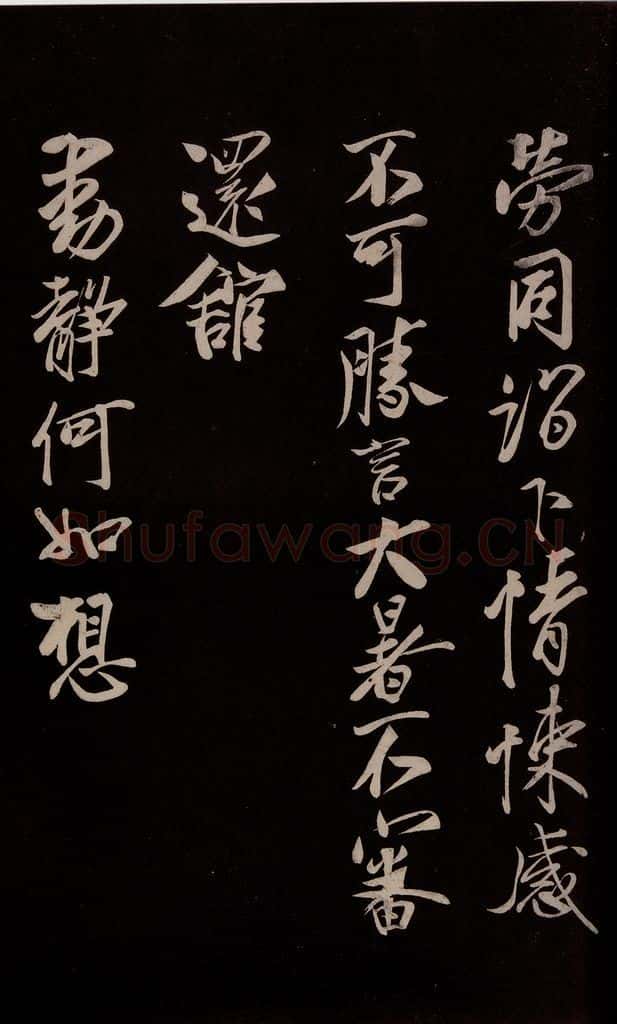 勞同詣下情悚感
不可勝言大暑不審
還館
動靜何如想
Shufawang.CN